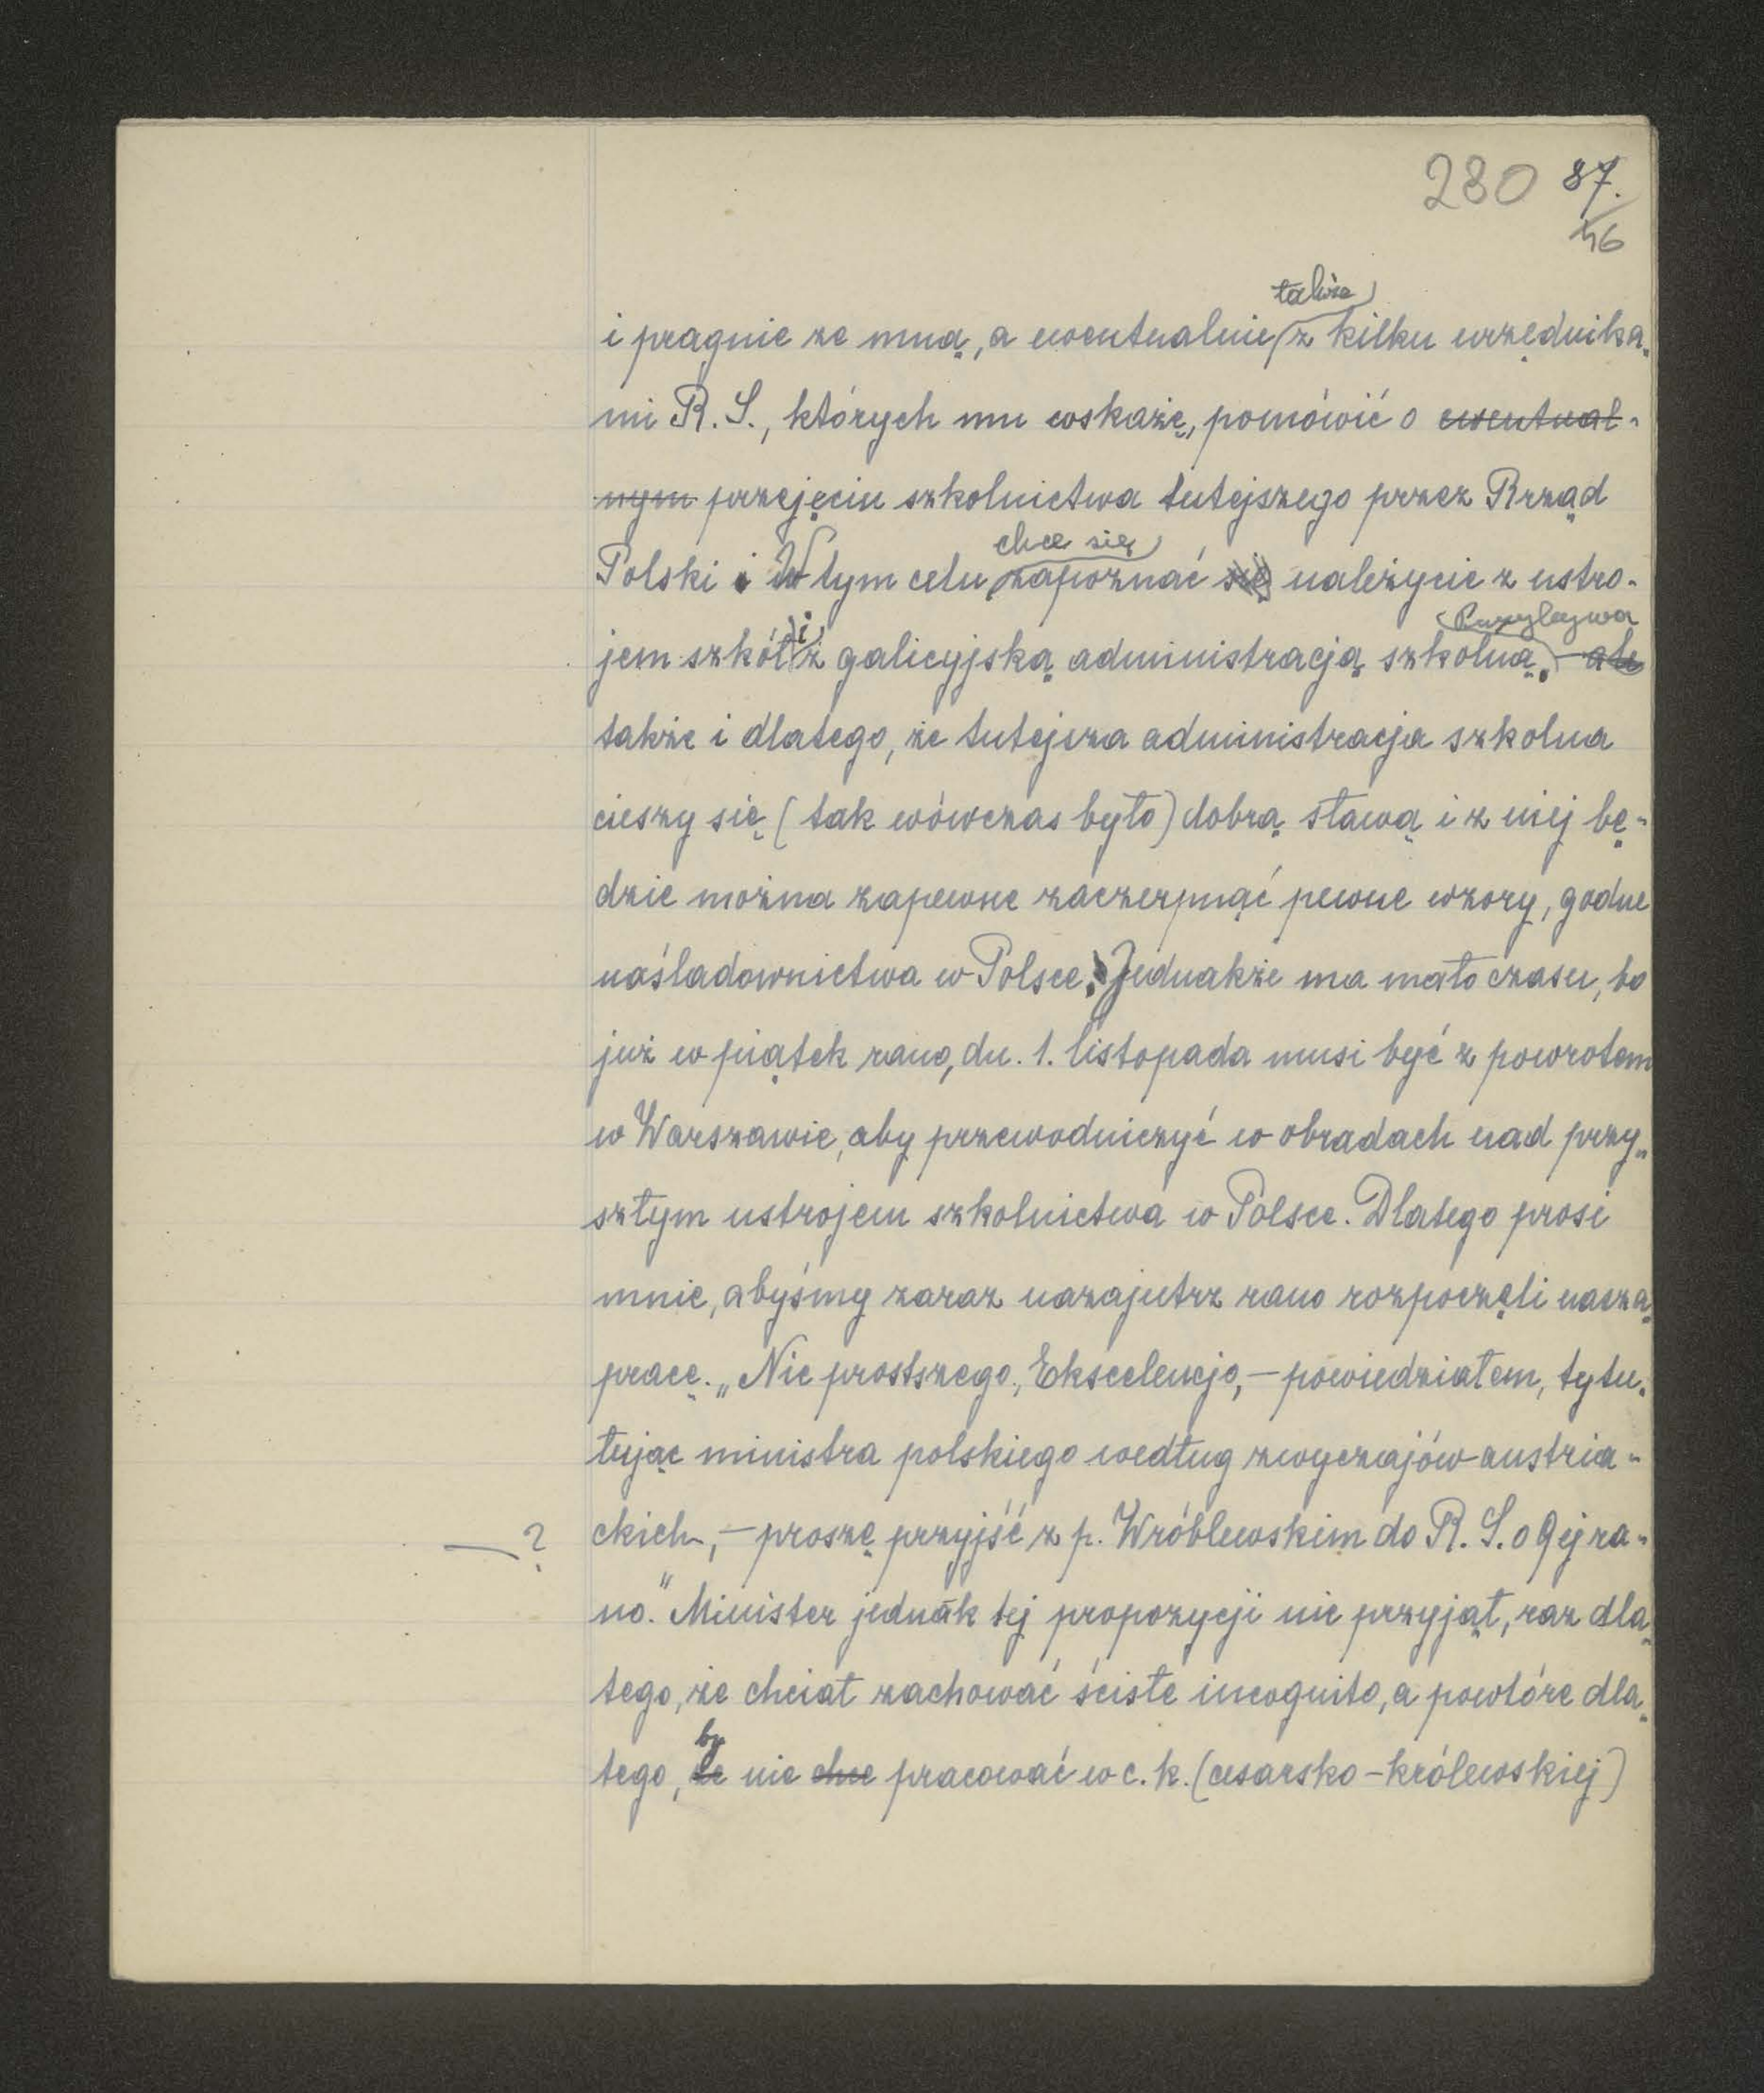 280 87.
46
także
i pragnie ze mną, a ewentualnie z kilku urzędnika-
mi R. S., których mu wskażę, pomówić o ewentual-
nym przejęciu szkolnictwa tutejszego przez Rząd
chce się
Polski i W tym celu zapoznać się należycie z ustro-
Przybywa
jem szkół i z galicyjską administracją szkolną. ale
także i dlatego, że tutejsza administracja szkolna
cieszy się (tak wówczas było) dobrą sławą i z niej bę-
dzie można zapewne zaczerpnąć pewne wzory, godne
naśladownictwa w Polsce. Jednakże ma mało czasu, bo
już w piątek rano, dn. 1. listopada musi być z powrotem
w Warszawie, aby przewodniczyć w obradach nad przy-
szłym ustrojem szkolnictwa w Polsce. Dlatego prosi
mnie, abyśmy zaraz nazajutrz rano rozpoczęli naszą
pracę. „Nic prostszego, Ekscelencjo, — powiedziałem, tytu-
łując ministra polskiego według zwyczajów austria-
— ? ckich, — proszę przyjść z p. Wróblewskim do R. S. o 9ej ra-
no." Minister jednak tej propozycji nie przyjął, raz dla-
tego, że chciał zachować ściste incognito, a powtóre dla-
by
tego, że nie chce pracować w c. k. (cesarsko-królewskiej)